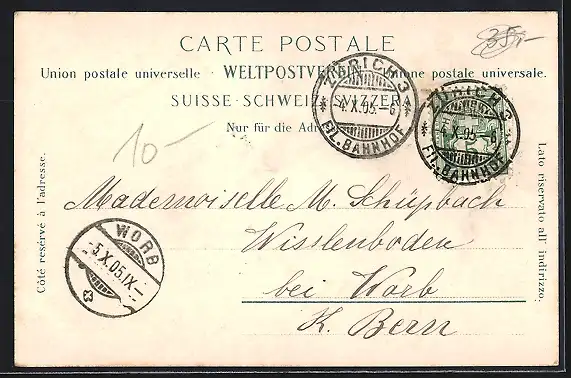 35.-
CARTE POSTALE
Union postale universelle · WELTPOSTVEREIN · Unione postale universale.
SUISSE · SCHWEIZ · SVIZZERA
Nur für die Adr
ZÜRICH 3
4.X.05.-6
FIL. BAHNHOF
ZÜRICH 3
4.X.05.-6
FIL. BAHNHOF
10-
Côté reservé à l'adresse.
Lato riservato all' indirizzo.
Mademoiselle M. Schüpbach
Wisslenboden
bei Worb
K. Bern
WORB
-5.X.05.IX-